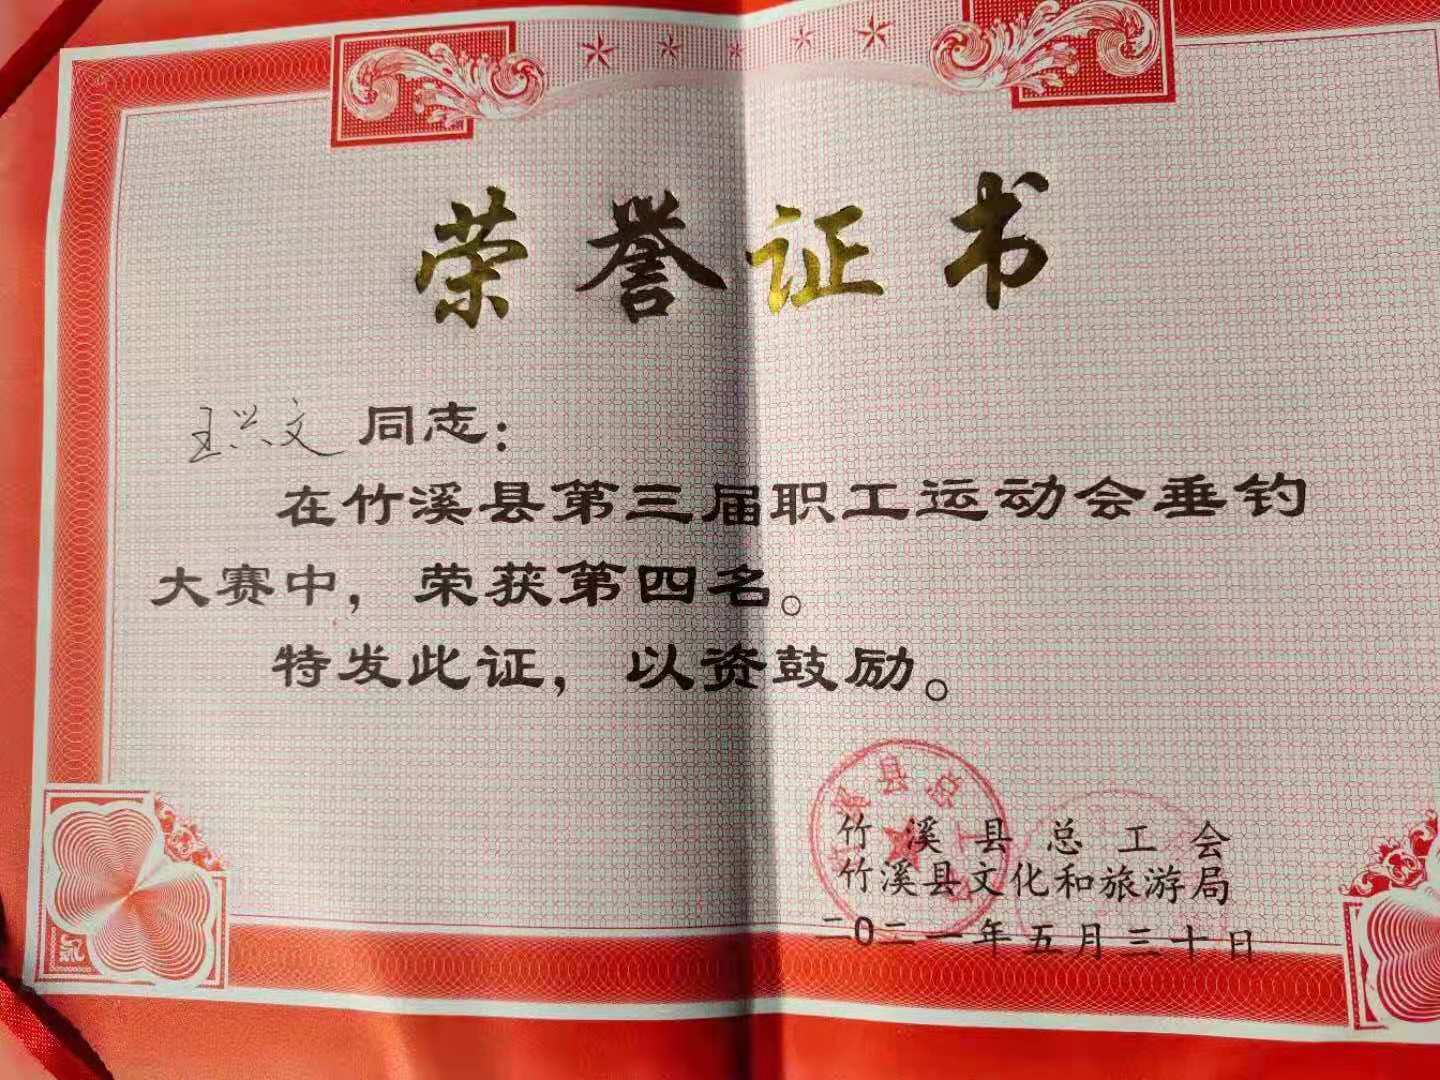 荣誉证书
王兴文同志：
在竹溪县第三届职工运动会垂钓
大赛中，荣获第四名。
特发此证，以资鼓励。
竹溪县总工会
竹溪县文化和旅游局
二〇二一年五月三十日